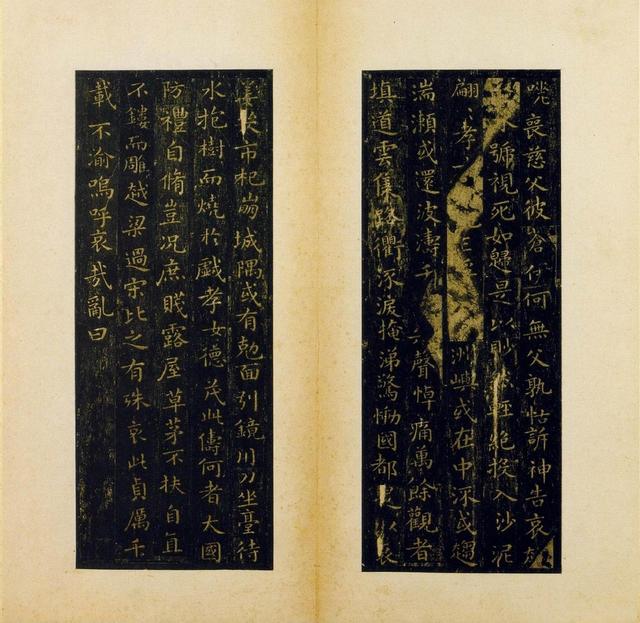 咷喪慈父彼蒼伊何無父孰怙訴神告哀
號視死如歸是以眇然輕絕投入沙泥
翩孝洲嶼或在中流或趨
湍瀨或還波濤千聲悼痛萬餘觀者
填道雲集路衢泺淚掩涕驚慟國都是以哀
姜哭市杞崩城隅或有剋面引鏡刀坐臺待
水抱樹而燒於戲孝女德茂此儔何者大國
防禮自脩豈況庶賤露屋草茅不扶自直
不鏤而雕越梁過宋比之有殊哀此貞厲千
載不渝嗚呼哀哉亂曰